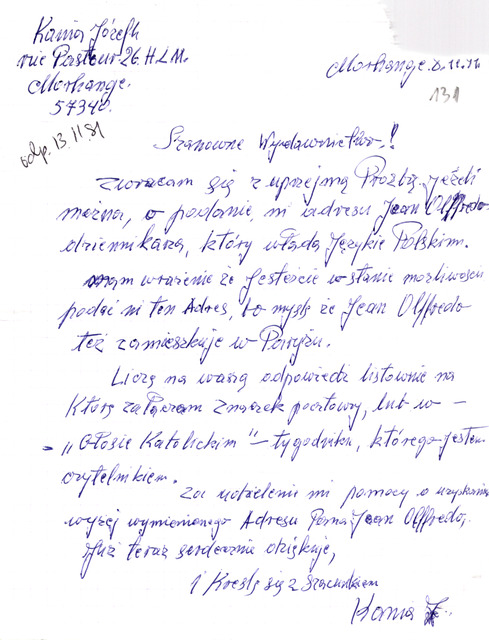 Kania Józefh
rue Pasteur 26. H.L.M.
Morhange.
57340.
Morhange. 8.11.81
131
odp. 13.11.81
Szanowne Wydawnictwo!
Zwracam się z uprzejmą Prożbą, Jeżeli
można, o podanie mi adresu Jean Olffredo
dziennikarza, który włada Językie Polskim.
Mam wrażenie że Jesteście w stanie możliwości
podać mi ten Adres, bo myślę że Jean Olffredo
też zamieszkuje w Paryżu.
Liczę na waszą odpowiedź listownie na
Którą załączam Znaczek pocztowy, lub w –
– „Głosie Katolickim" – tygodniku, którego jestem
czytelnikiem.
Za udzielenie mi pomocy o uzyskaniu
wyżej wymienionego Adresu Pana Jean Olffredo,
Już teraz serdecznie dziękuję,
i Kreślę się z Szacunkiem
Kania J.